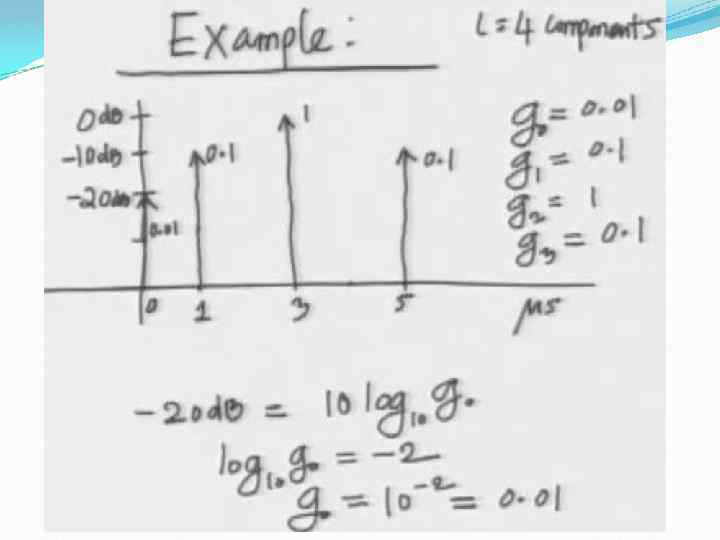 Example:
L = 4 components
0dB
-10dB
-20dB
0.01
0.1
1
0.1
g₀ = 0.01
g₁ = 0.1
g₂ = 1
g₃ = 0.1
0 1 3 5 μs
-20dB = 10 log₁₀ g₀
log₁₀ g₀ = -2
g₀ = 10⁻² = 0.01